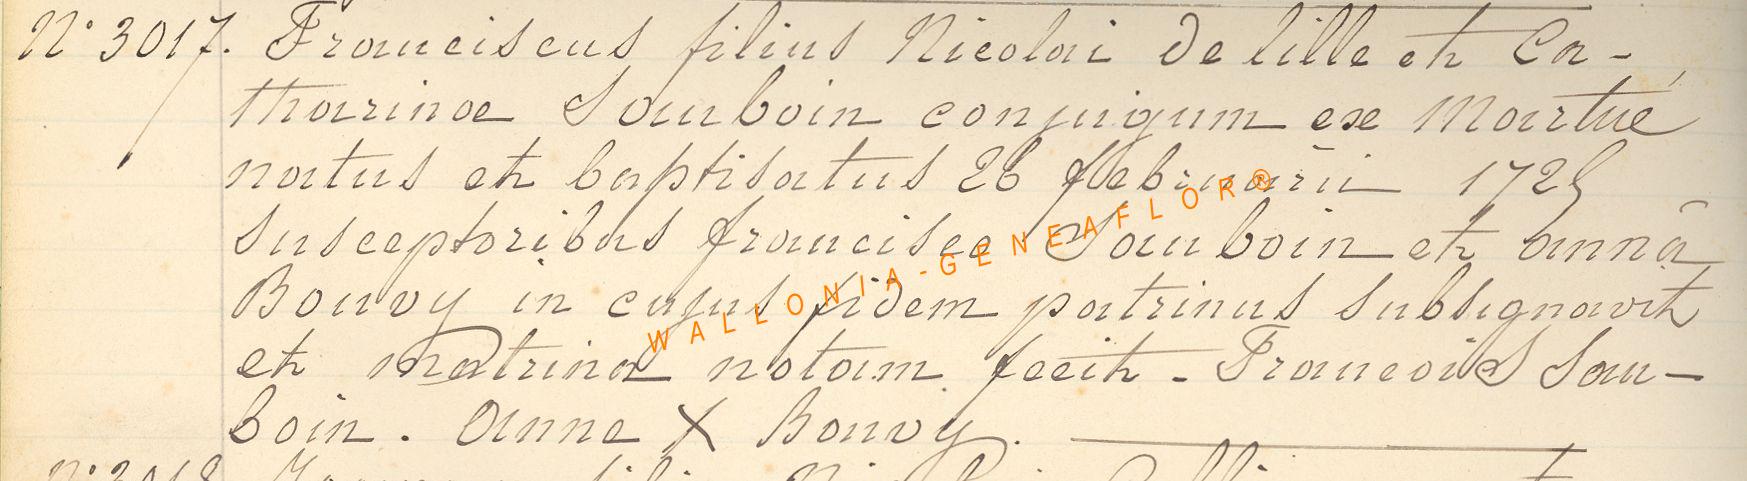 N° 3017. Franciscus filius Nicolai De lille et Ca-
tharinae Sauboin conjugum ex Martué
natus et baptisatus 26 februarii 172
susceptoribus francisco Sauboin et annâ
Bouvy in cujus fidem patrinus subsignavit
et matrina notam fecit - Francois Sau-
boin. Anne X Bouvy.
WALLONIA-GENEAFLOR®
N° 3018